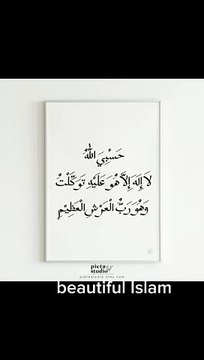 حَسْبِيَ اللهُ
لَا إِلَهَ إِلَّا هُوَ عَلَيْهِ تَوَكَّلْتُ
وَهُوَ رَبُّ الْعَرْشِ الْعَظِيْمِ
pieta
studio
beautiful Islam